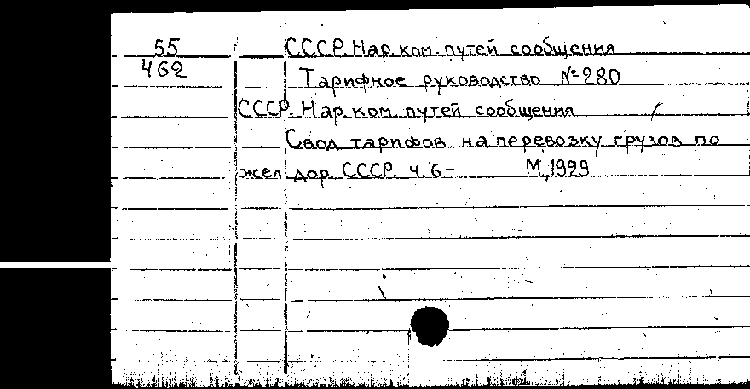 55 СССР. Нар. ком. путей сообщения
462 Тарифное руководство №280
СССР. Нар. ком. путей сообщения
Свод тарифов на перевозку грузов по
жел дор. СССР. ч. 6-
М, 1929